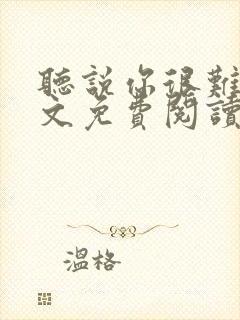 聽說你很難
文免費閱讀
溫格